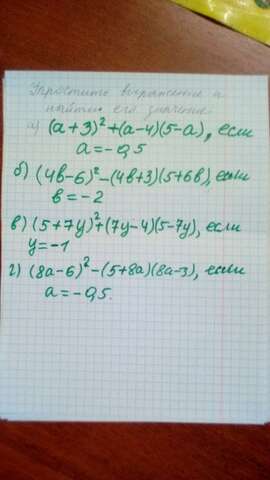 Упростите выражение и
найти его значение:
а) (a+3)²+(a-4)(5-a), если
a=-0,5
б) (4b-6)²-(4b+3)(5+6b), если
b=-2
в) (5+7y)²+(7y-4)(5-7y), если
y=-1
г) (8a-6)²-(5+8a)(8a-3), если
a=-0,5.